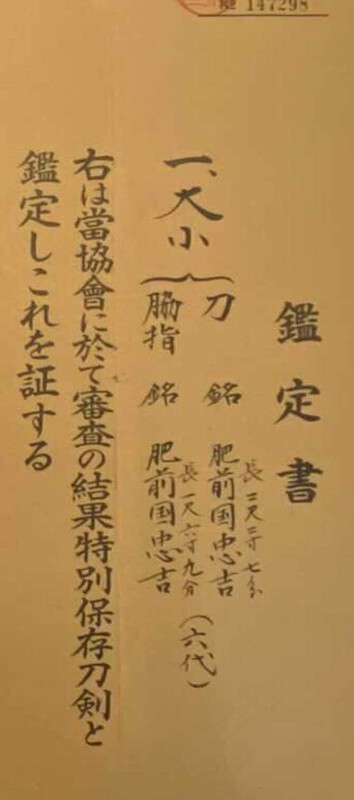 147298
鑑定書
一、大小
刀 銘 肥前国忠吉
長二尺二寸七分
(六代)
脇指 銘 肥前国忠吉
長一尺六寸九分
右は當協會に於て審査の結果特別保存刀剣と
鑑定しこれを証する